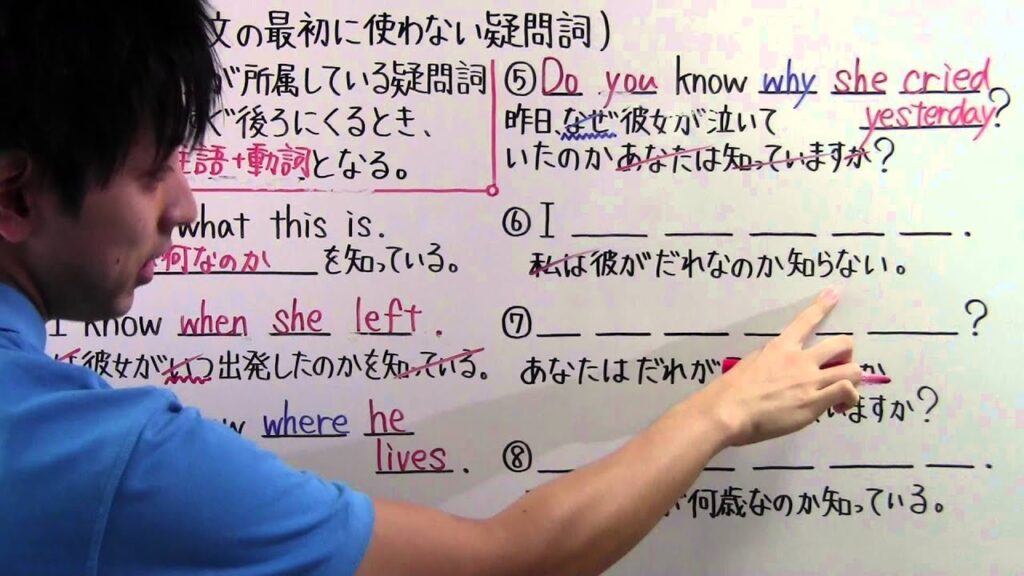 文の最初に使わない疑問詞)
が所属している疑問詞
ぐ後ろにくるとき、
主語+動詞となる。
what this is.
何なのか を知っている。
I know when she left.
彼女がいつ出発したのかを知っている。
where he
lives.
⑤ Do you know why she cried
yesterday?
昨日、なぜ彼女が泣いて
いたのかあなたは知っていますか?
⑥ I ___ ___ ___ ___ ___.
私は彼がだれなのか知らない。
⑦ ___ ___ ___ ___ ___?
あなたはだれが か
いますか?
⑧ ___ ___ ___ ___.
何歳なのか知っている。